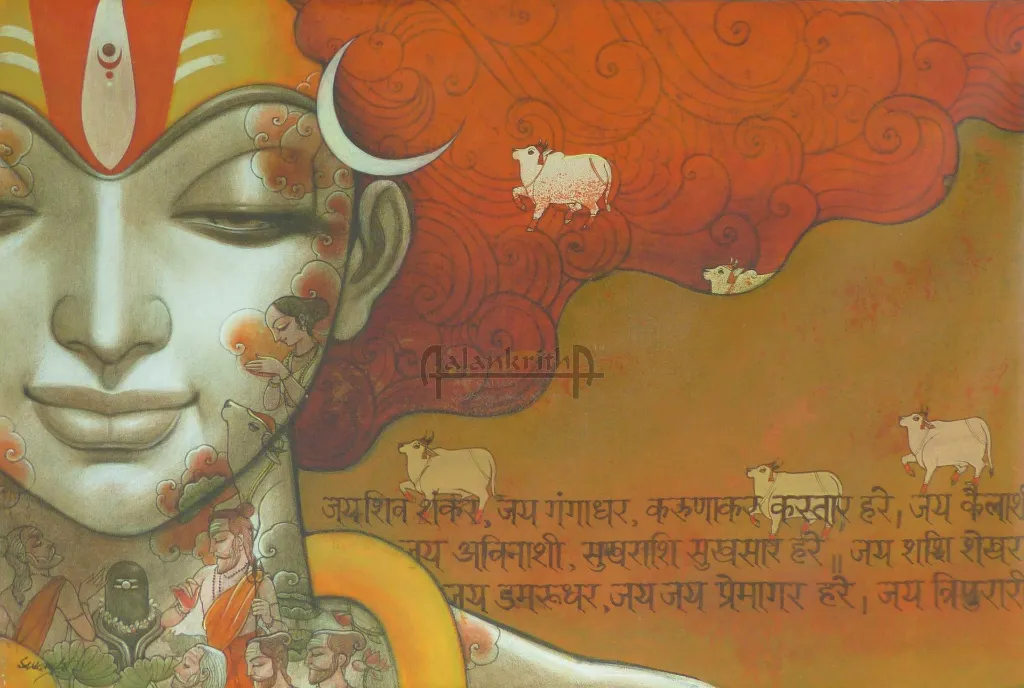 AalankrithA
जय शिव शंकर, जय गंगाधर, करूणाकर करतार हरे। जय कैलाशी
जय अविनाशी, सुखराशि सुखसार हरे॥ जय शशि शेखर
जय डमरूधर, जय जय प्रेमागर हरे। जय त्रिपुरारी